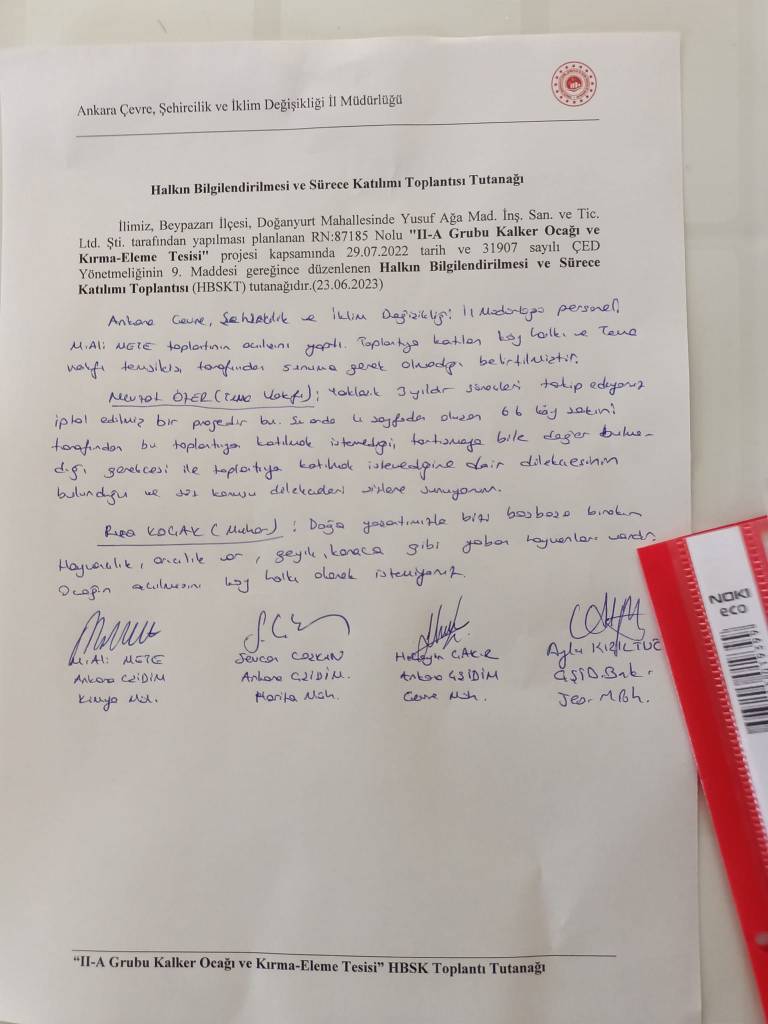 Ankara Çevre, Şehircilik ve İklim Değişikliği İl Müdürlüğü
Halkın Bilgilendirilmesi ve Sürece Katılımı Toplantısı Tutanağı
İlimiz, Beypazarı İlçesi, Doğanyurt Mahallesinde Yusuf Ağa Mad. İnş. San. ve Tic.
Ltd. Şti. tarafından yapılması planlanan RN:87185 Nolu "II-A Grubu Kalker Ocağı ve
Kırma-Eleme Tesisi" projesi kapsamında 29.07.2022 tarih ve 31907 sayılı ÇED
Yönetmeliğinin 9. Maddesi gereğince düzenlenen Halkın Bilgilendirilmesi ve Sürece
Katılımı Toplantısı (HBSKT) tutanağıdır.(23.06.2023)
Ankara Çevre, Şehircilik ve İklim Değişikliği İl Müdürlüğü personeli
M.Ali METE toplantının açılışını yaptı. Toplantıya katılan köy halkı ve Tema
vakfı temsilcisi tarafından sunuma gerek olmadığı belirtilmiştir.
Nevzat ÖZER (Tema Vakfı); Yaklaşık 3 yıldır süreçleri takip ediyoruz
iptal edilmiş bir projedir bu. Şu anda 4 sayfadan oluşan 66 köy sakini
tarafından bu toplantıya katılmak istenmediği, tartışmaya bile değer bulunma-
dığı gerekçesi ile toplantıya katılmak istenmediğine dair dilekçesinin
bulunduğu ve söz konusu dilekçeleri sizlere sunuyorum.
Rıza KOÇAK (Muhtar) : Doğa yaşantımızla bizi başbaşa bırakın
Hayvancılık, arıcılık var, geyik, karaca gibi yaban hayvanları vardır.
Ocağın açılmasını köy halkı olarak istemiyoruz.
M.Ali METE Sevcan COŞKUN Hüseyin ÇAKIR KIZILTUĞ
Ankara ÇŞİDİM Ankara ÇŞİDİM. Ankara ÇŞİDİM ÇŞİD.Bak.
Kimya Müh. Harita Müh. Çevre Müh. Jeo. Müh.
"II-A Grubu Kalker Ocağı ve Kırma-Eleme Tesisi" HBSK Toplantı Tutanağı
NOKI
eco